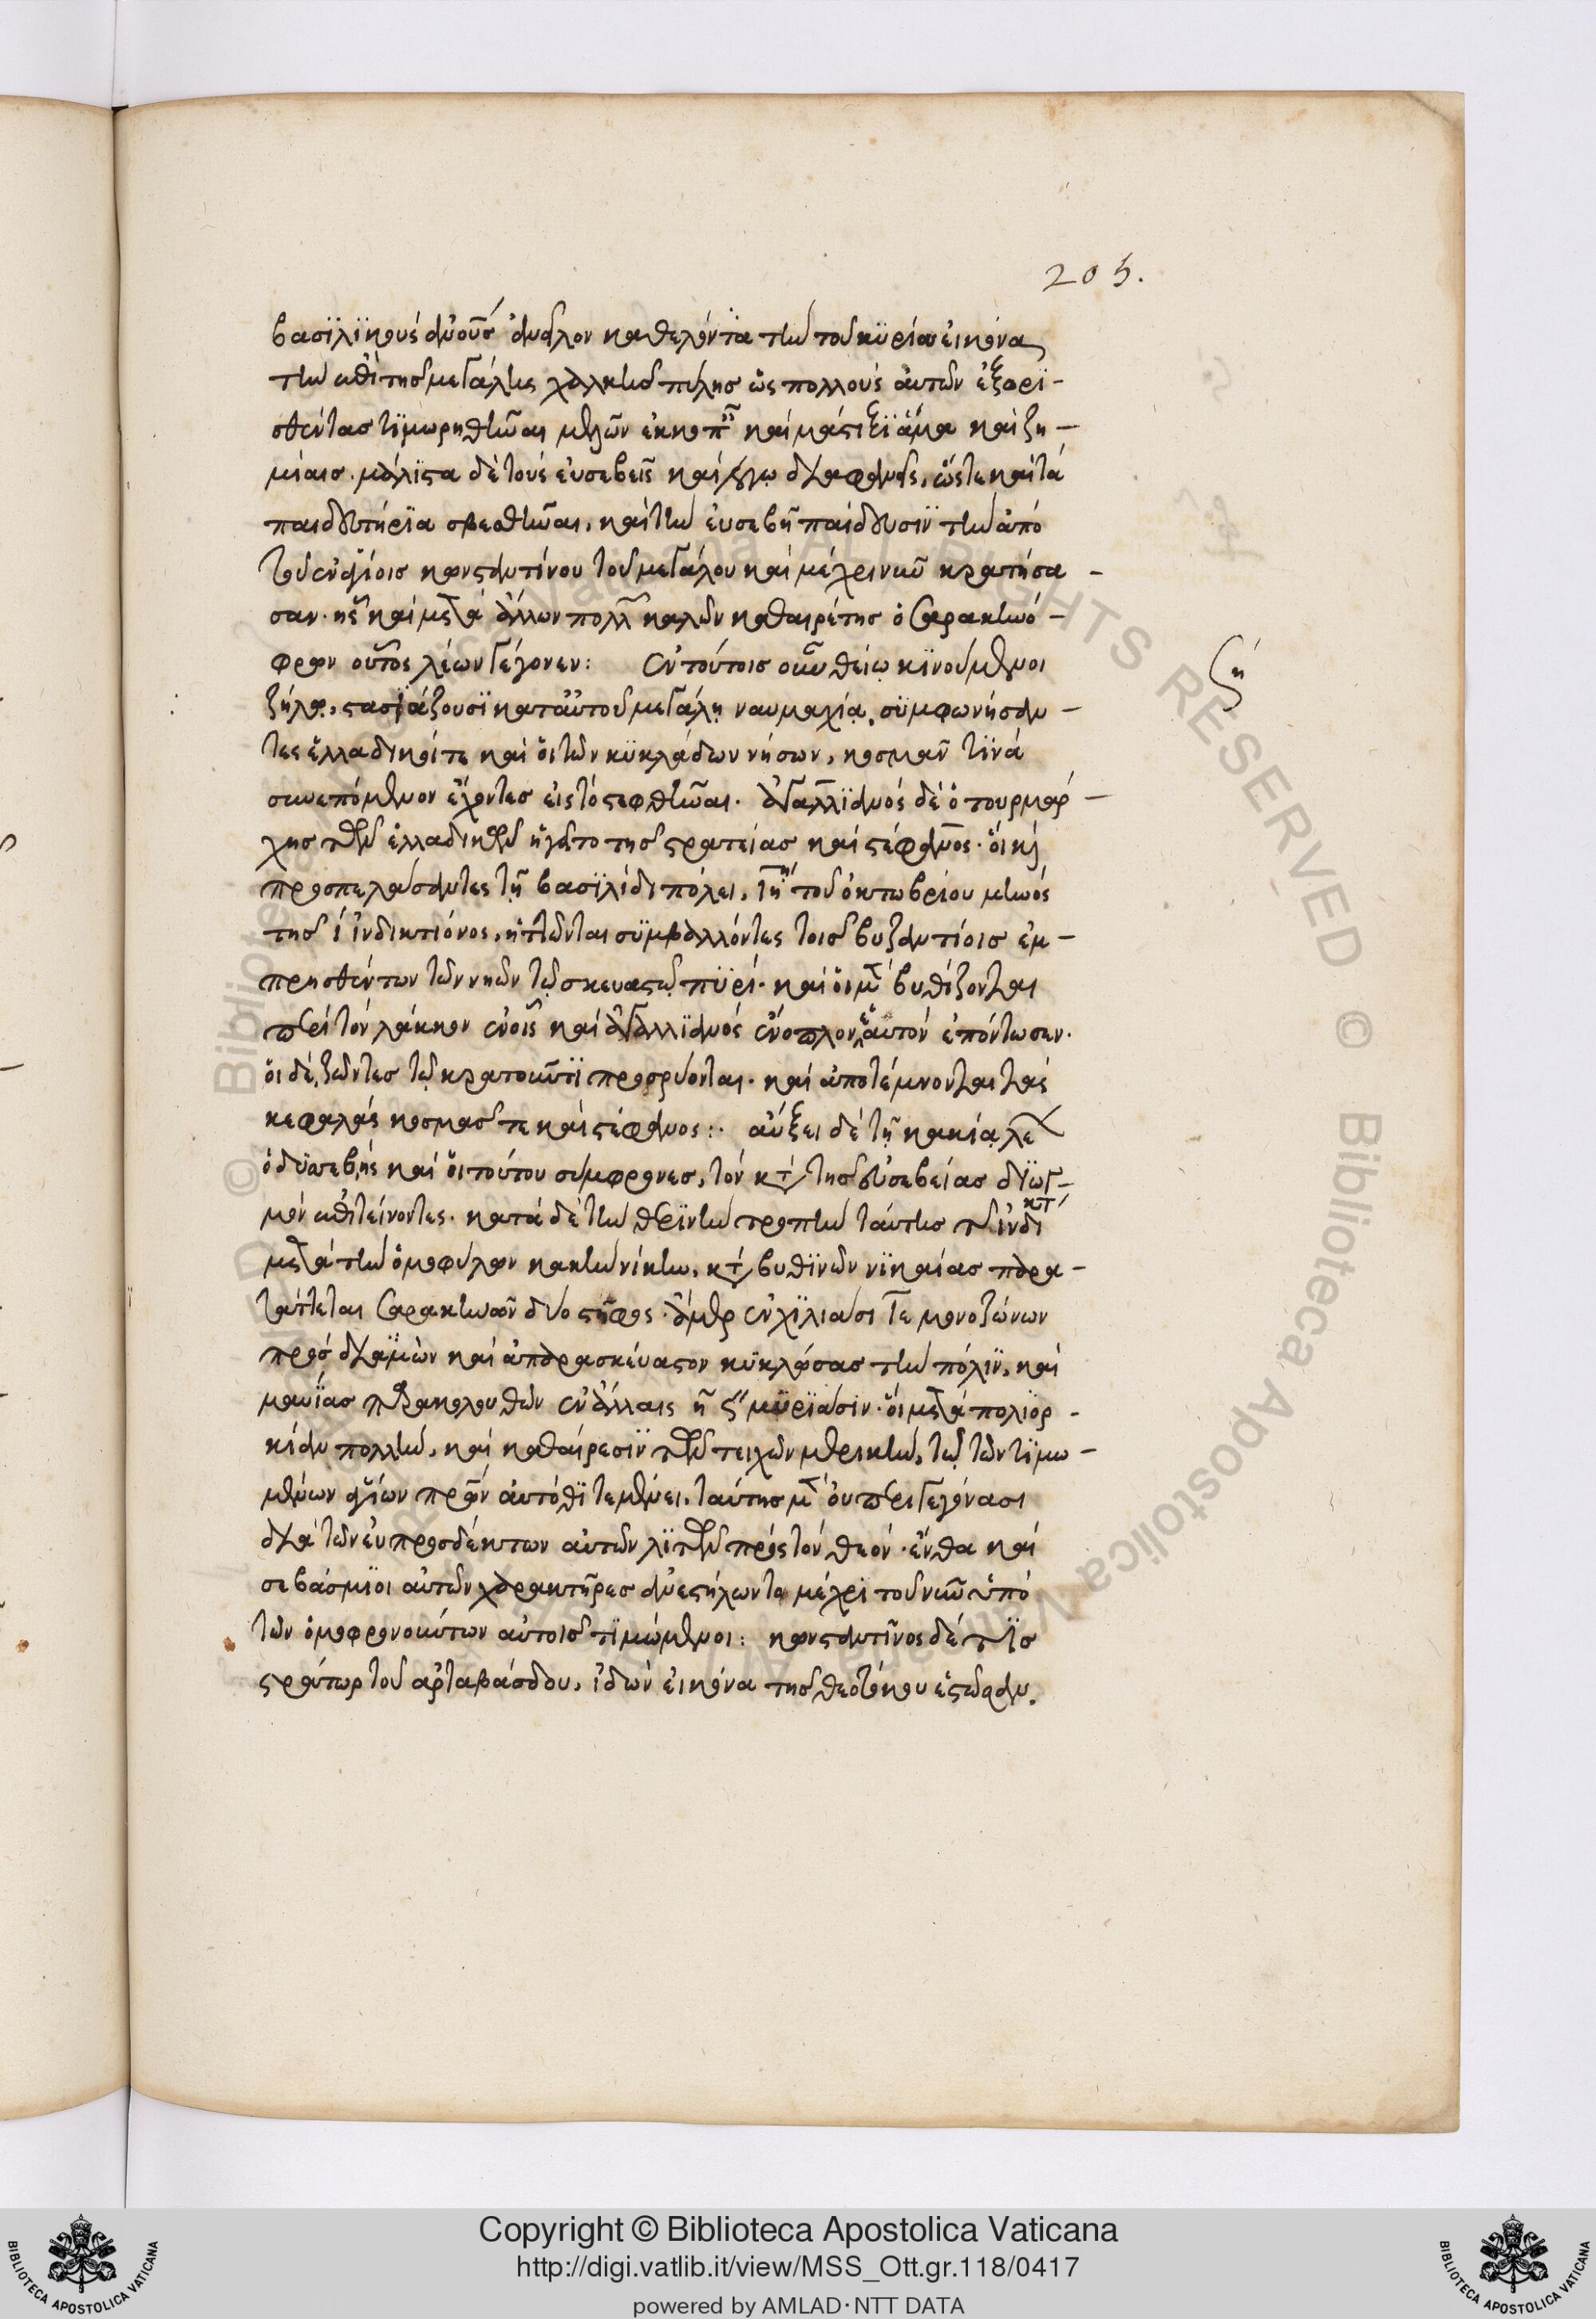 205.
βασϊλϊκοὺς ἀν̓οῦς ἄνδλον καθελόντα τὴν τοῦ κϋρίου εἰκόνα
τὴν ἐπὶ τῆς μεγάλης χαλκῆς πύλης ὡς πολλοὺς αὐτῶν ἐξορϊ-
σθέντας τϊμωρηθῆναι μελῶν ἐκκοπαῖς καὶ μάστιξϊ ἅμα καὶ ζη-
μίαις. μάλϊστα δὲ τοὺς εὐσεβεῖς καὶ λόγῳ διαφανεῖς, ὥστε καὶ τὰ
παιδευτήρϊα σβεσθῆναι, καὶ τὴν εὐσεβῆ παίδευσιϊν τὴν ἀπὸ
τοῦ ἐν ἁγίοις κωνσταντίνου τοῦ μεγάλου καὶ μέχρι νῦν κρατήσα-
σαν. ἧς καὶ μετὰ ἄλλων πολλῶν καλῶν καθαιρέτης ὁ σαρακηνό-
φρων οὗτος λέων γέγονεν: ἐν τούτοις οὖν θείῳ κϊνούμενοι
ζήλῳ, στασϊάζουσϊ κατ' αὐτοῦ μεγάλῃ ναυμαχίᾳ, συμφωνήσαν-
τες ἑλλαδικοί τε καὶ οἱ τῶν κϋκλάδων νήσων, κοσμᾶν τϊνὰ
συνεπόμενον ἔχοντες εἰς τὸ στεφθῆναι. ἀγαλλϊανὸς δὲ ὁ τουρμάρ-
χης τῶν ἑλλαδικῶν ἡγεῖτο τῆς στρατείας καὶ στέφανος. οἳ καὶ
προσπελάσαντες τῇ βασϊλίδι πόλει, ιη τοῦ ὀκτωβρίου μηνὸς
τῆς ι ἰνδικτιόνος, ἡττῶνται συμβαλλόντες τοῖς βυζαντίοις ἐμ-
πρησθέντων τῶν νηῶν τῷ σκευαστῷ πϋρί. καὶ οἱ μὲν βυθίζονται
περὶ τὸν λάκκον ἐν οἷς καὶ ἀγαλλϊανὸς ἔνοπλον ἑαυτὸν ἐπόντωσεν.
οἱ δὲ ζῶντες τῷ κρατοῦντϊ προσρύονται. καὶ ἀποτέμνονται τὰς
κεφαλὰς κοσμᾶς τε καὶ στέφανος:. αὔξει δὲ τῇ κακίᾳ λέων
ὁ δϋσσεβὴς καὶ οἱ τούτου σύμφρονες, τὸν κατὰ τῆς εὐσεβείας δϊωγ-
μὸν ἐπιτείνοντες. κατὰ δὲ τὴν θερϊνὴν τροπὴν ταύτης τῆς ἰνδικτ
μετὰ τὴν ὁμοφύλων κακὴν νίκην, κατὰ βυθϊνῶν νϊκαίας παρα-
τάττεται σαρακηνῶν δύο στῖφος. ἄμερ ἐν χϊλιάσι ιε μονοζώνων
προσδραμὼν καὶ ἀπαρασκεύαστον κϋκλώσας τὴν πόλϊν, καὶ
μαυΐας παρακολουθῶν ἐν ἄλλαις η ϛ μϋρϊάσιν. οἳ μετὰ πολϊορ-
κίαν πολλὴν, καὶ καθαίρεσϊν τῶν τειχῶν μερικὴν, τῷ τῶν τϊμω-
μένων ἁγίων πρων αὐτόθϊ τεμένει, ταύτης μὲν οὐ περιγεγόνασι
διὰ τῶν εὐπροσδέκτων αὐτῶν λϊτῶν πρὸς τὸν θεὸν. ἔνθα καὶ
σεβάσμϊοι αὐτῶν χαρακτῆρες ἀνεστήλωντο μέχρϊ τοῦ νῦν ὑπὸ
τῶν ὁμοφρονούντων αὐτοῖς τϊμώμενοι: κωνσταντῖνος δέ τϊς
στράτωρ τοῦ ἀρταβάσδου, ἰδὼν εἰκόνα τῆς θεοτόκου ἑστῶσαν,
ζη
Copyright © Biblioteca Apostolica Vaticana
http://digi.vatlib.it/view/MSS_Ott.gr.118/0417
powered by AMLAD·NTT DATA
BIBLIOTECA APOSTOLICA VATICANA
BIBLIOTECA APOSTOLICA VATICANA